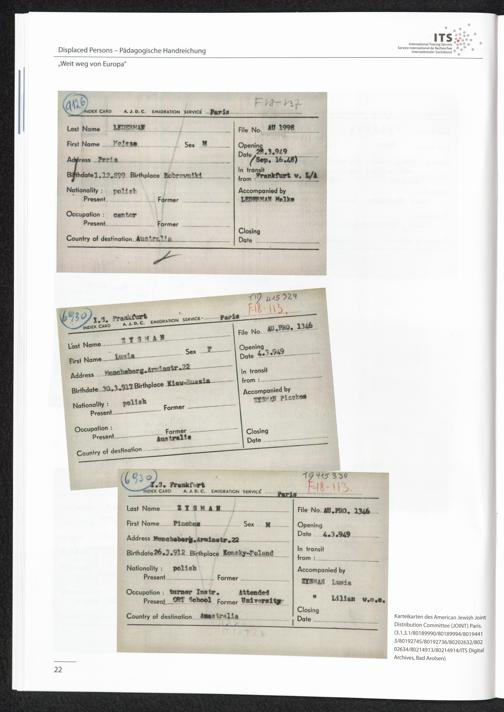 ITS
International Tracing Service
Service International de Recherches
Internationaler Suchdienst
Displaced Persons – Pädagogische Handreichung
„Weit weg von Europa“
9126
F18-137
INDEX CARD A. J. D. C. EMIGRATION SERVICE Paris
Last Name LEDERMAN
First Name Sex M
Address Paris
Birthdate 1.12.899 Birthplace Bobrowniki
Nationality : polish
Present Former
Occupation : cantor
Present Former
Country of destination Australia
File No. AU 1998
Opening
Date 28.3.949
(Sep. 16.48)
In transit
from Frankfurt w. L/A
Accompanied by
LEDERMAN Malka
Closing
Date
6930
I.Z. Frankfurt
F18-113.
INDEX CARD A. J. D. C. EMIGRATION SERVICE Paris
Last Name ZYSMAN
First Name Lusia Sex F
Address Moncheberg.Arminstr.22
Birthdate 30.3.917 Birthplace Kiew-Russia
Nationality : polish
Present Former
Occupation :
Present Former
Australia
Country of destination
File No. AU.PRO. 1346
Opening
Date 4.3.949
In transit
from :
Accompanied by
ZYSMAN Pinchas
Closing
Date
6930
I.Z. Frankfurt
F18-113.
INDEX CARD A. J. D. C. EMIGRATION SERVICE Paris
Last Name ZYSMAN
First Name Pinchas Sex M
Address Muncheberg.Arminstr.22
Birthdate 26.3.912 Birthplace Konsky-Poland
Nationality : polish
Present Former
Occupation : turner Instr. Attended
Present ORT School Former University
Country of destination Australia
File No. AU.PRO. 1346
Opening
Date 4.3.949
In transit
from :
Accompanied by
ZYSMAN Lusia
" Lilian
Closing
Date
Karteikarten des American Jewish Joint
Distribution Committee (JOINT) Paris.
(3.1.3.1/80189990/80189994/8019441
3/80192745/80192736/80202632/802
02634/80214913/80214914/ITS Digital
Archives, Bad Arolsen)
22